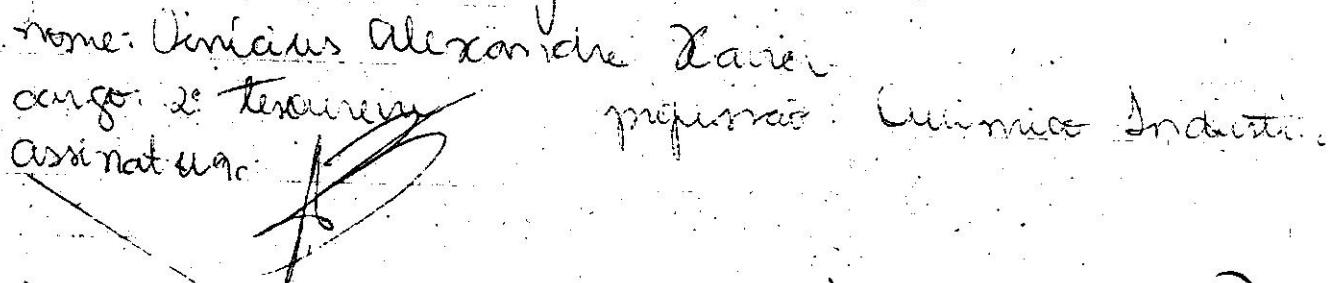 nome: Vinícius Alexandre Xavier
cargo: 2º tesoureiro profissão: Químico Industri
assinatura: